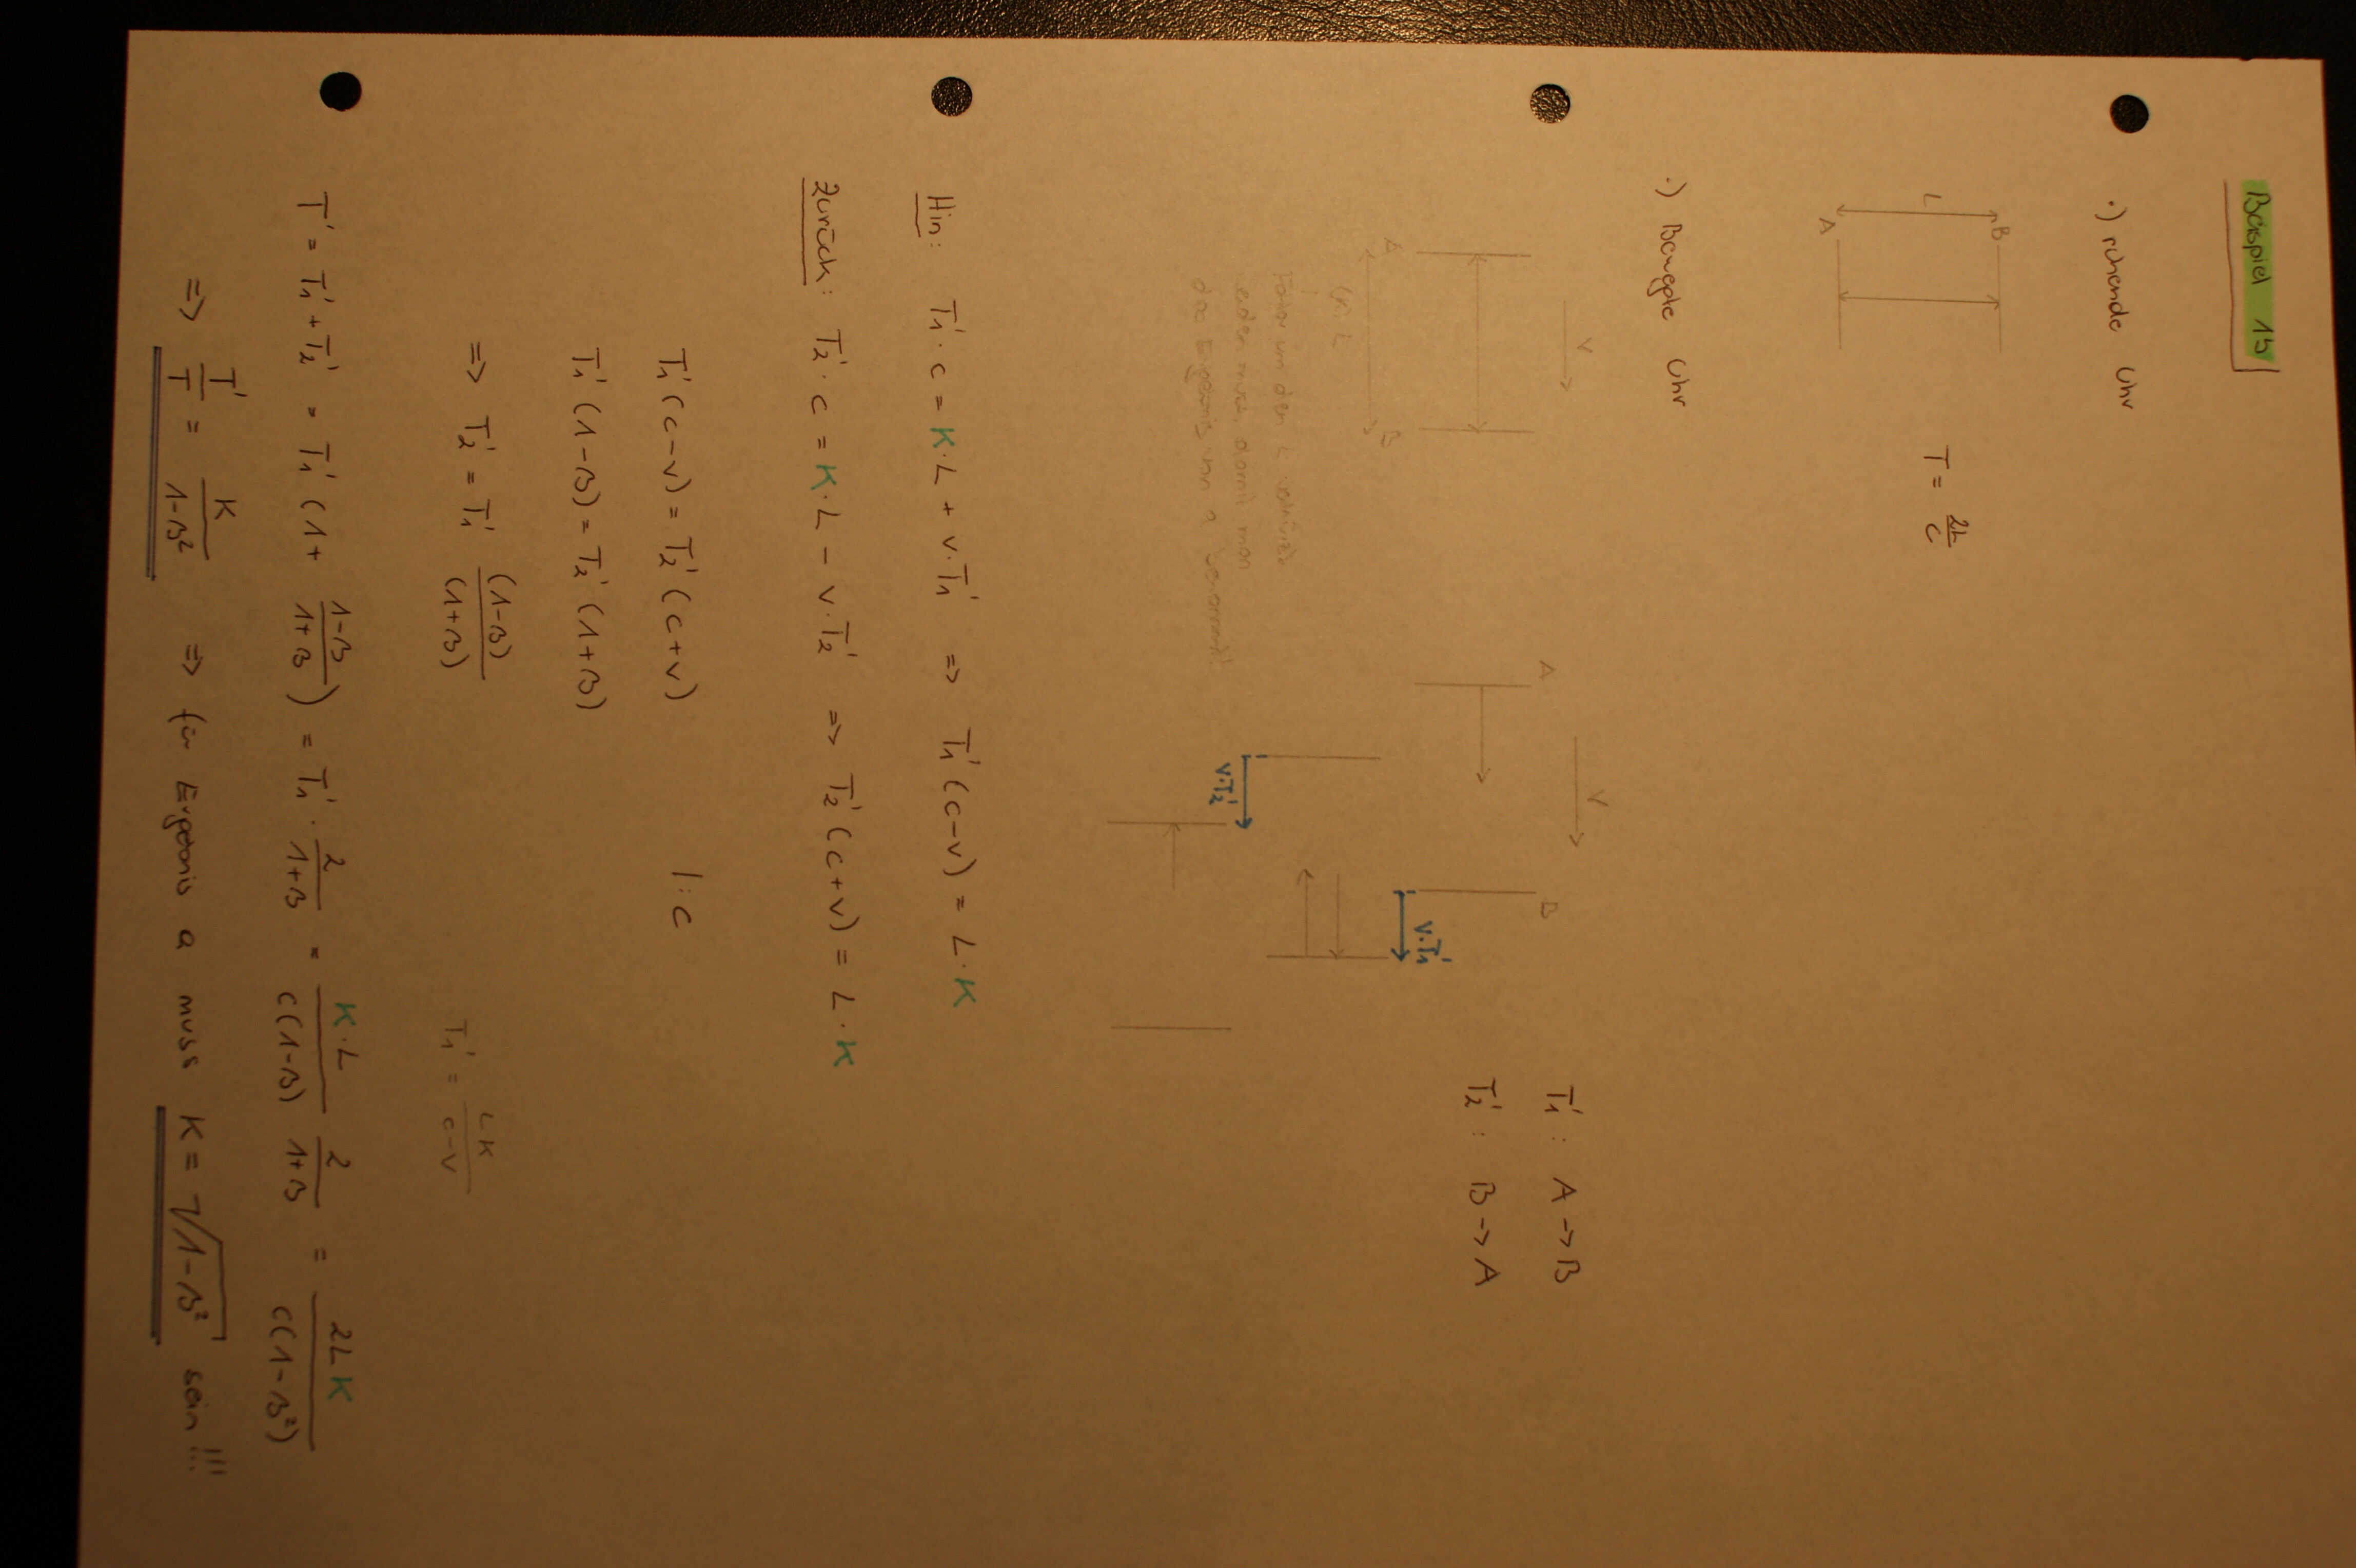 Beispiel 15
·) ruhende Uhr
B
L
A
T = 2L/c
·) Bewegte Uhr
v
A B
K·L
Faktor um den L verkürzt
werden muss, damit man
das Ergebnis von a bekommt!
v
A B
v·T₁'
v·T₂'
T₁' : A → B
T₂' : B → A
Hin: T₁'·c = K·L + v·T₁' => T₁'(c-v) = L·K
zurück: T₂'·c = K·L - v·T₂' => T₂'(c+v) = L·K
T₁'(c-v) = T₂'(c+v) |:c
T₁'(1-β) = T₂'(1+β)
=> T₂' = T₁' (1-β)/(1+β)
T₁' = LK/(c-v)
T' = T₁' + T₂' = T₁'(1 + (1-β)/(1+β)) = T₁' · 2/(1+β) = K·L/(c(1-β)) 2/(1+β) = 2LK/(c(1-β²))
=> T'/T = K/(1-β²) => für Ergebnis a muss K = √(1-β²) sein!!!